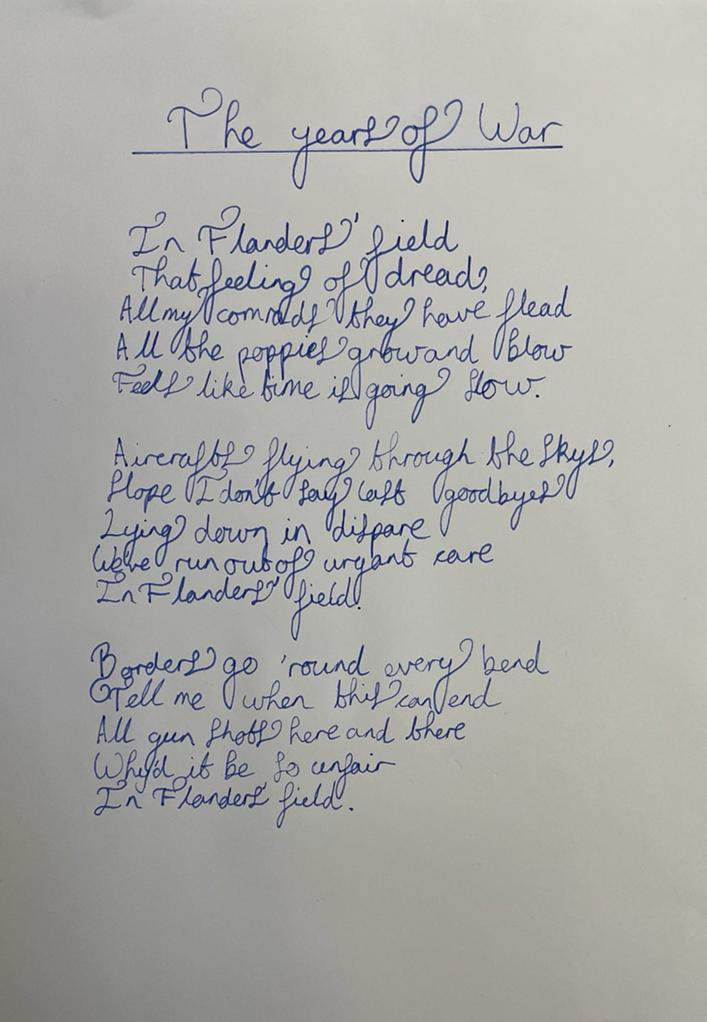 The years of War
In Flanders' field
That feeling of dread,
All my comrads they have flead
All the poppies grow and blow
Feels like time is going slow.
Aircrafts flying through the skys,
Hope I don't say last goodbyes
Lying down in dispare
We've run out of urgant care
In Flanders' field.
Borders go 'round every bend
Tell me when this can end
All gun shots here and there
Why'd it be so unfair
In Flanders' field.